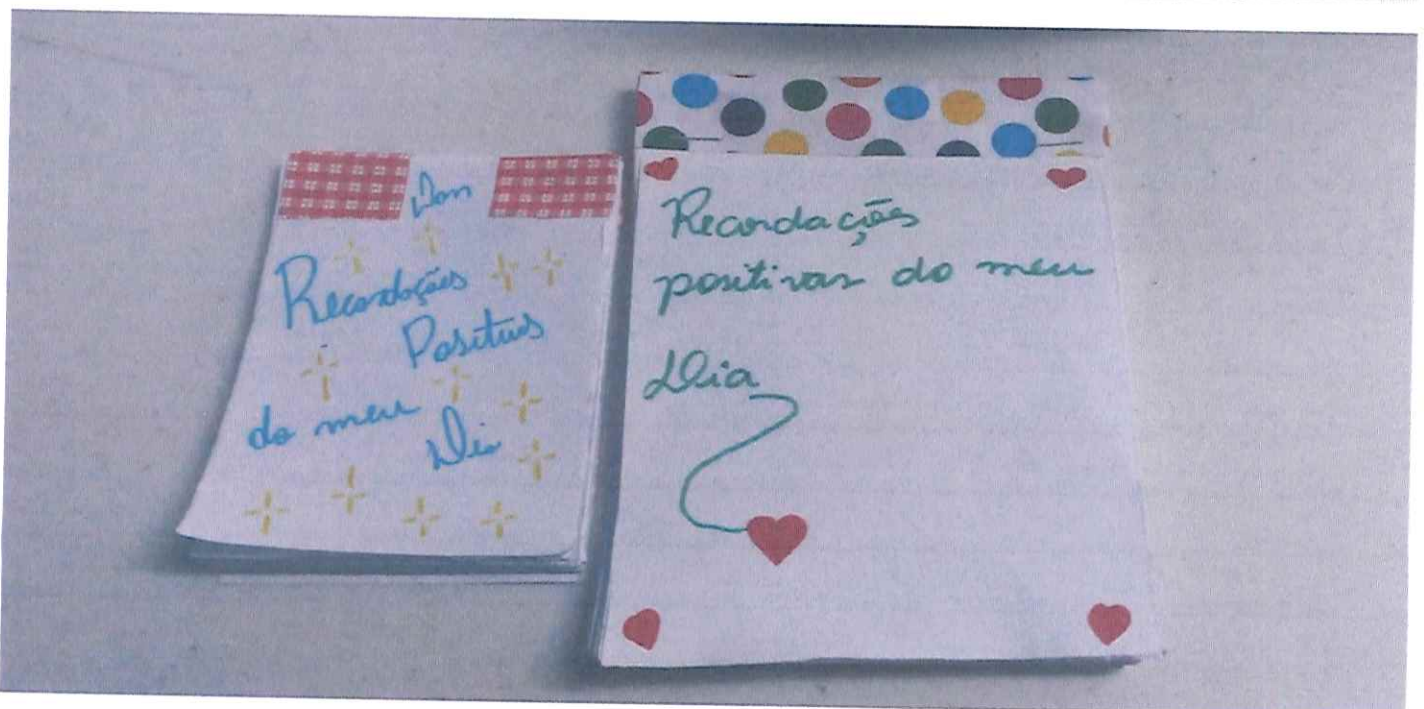 Recordações
Positivas
do meu
Dia
Recordações
positivas do meu
Dia